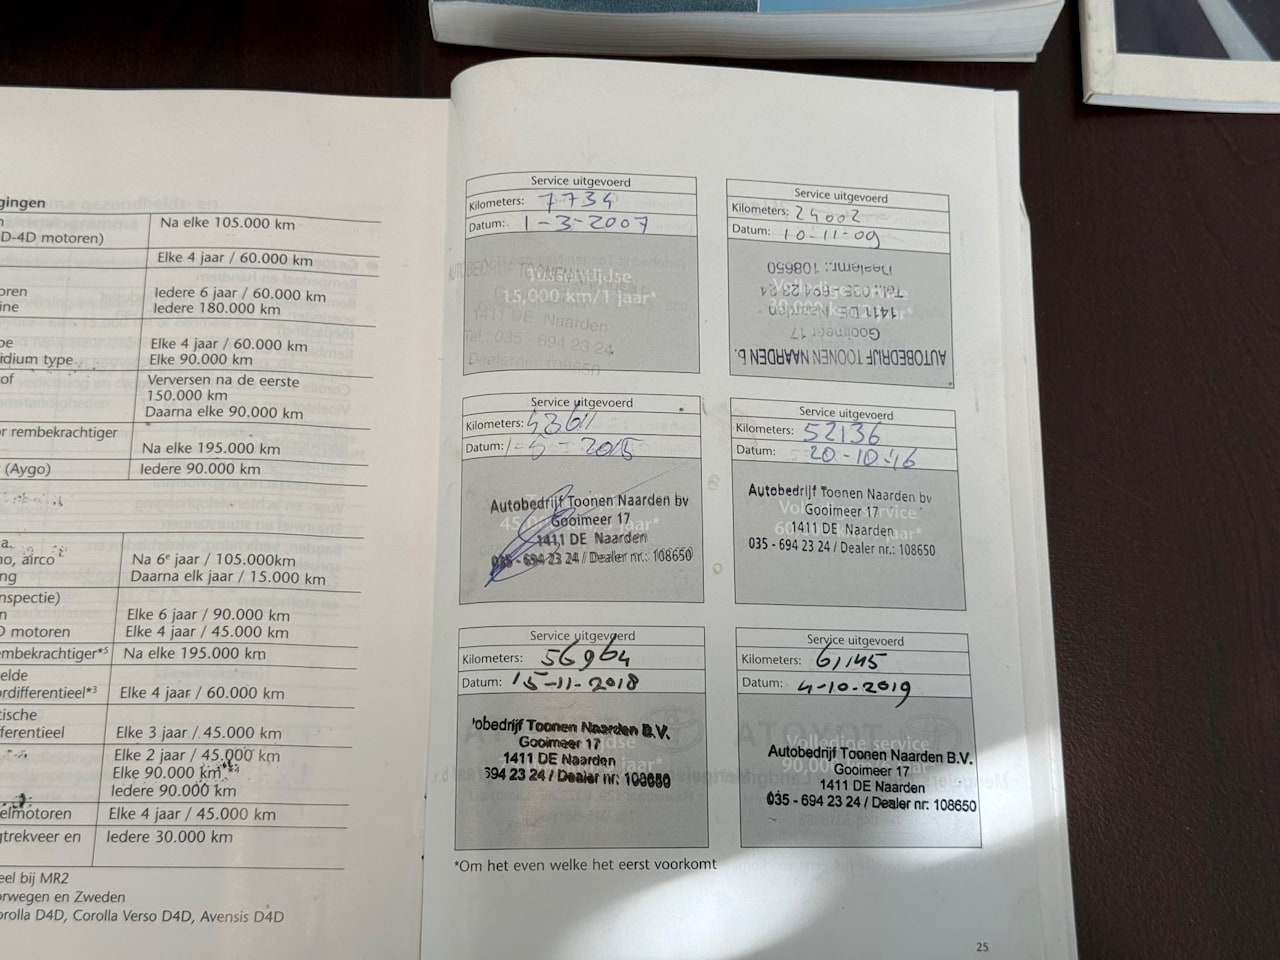 gingen
Na elke 105.000 km
D-4D motoren)
Elke 4 jaar / 60.000 km
oren
Iedere 6 jaar / 60.000 km
ine
Iedere 180.000 km
pe
Elke 4 jaar / 60.000 km
idium type
Elke 90.000 km
of
Verversen na de eerste
150.000 km
Daarna elke 90.000 km
or rembekrachtiger
Na elke 195.000 km
(Aygo)
Iedere 90.000 km
a.
no, airco
Na 6e jaar / 105.000km
ng
Daarna elk jaar / 15.000 km
nspectie)
n
Elke 6 jaar / 90.000 km
D motoren
Elke 4 jaar / 45.000 km
embekrachtiger*5
Na elke 195.000 km
elde
ordifferentieel*3
Elke 4 jaar / 60.000 km
tische
ferentieel
Elke 3 jaar / 45.000 km
Elke 2 jaar / 45.000 km
Elke 90.000 km
Iedere 90.000 km
elmotoren
Elke 4 jaar / 45.000 km
gtrekveer en
Iedere 30.000 km
eel bij MR2
orwegen en Zweden
orolla D4D, Corolla Verso D4D, Avensis D4D
Service uitgevoerd
Kilometers: 7734
Datum: 1-3-2007
Tussentijdse
15,000 km/1 jaar*
1411 DE Naarden
Tel.: 035 - 694 23 24
Dealernr.: 108650
Service uitgevoerd
Kilometers: 24002
Datum: 10-11-09
AUTOBEDRIJF TOONEN NAARDEN b.
Gooimeer 17
1411 DE Naarden
Tel.: 035-694 23 24
Dealernr.: 108650
Service uitgevoerd
Kilometers: 43611
Datum: 1-5-2015
Autobedrijf Toonen Naarden bv
Gooimeer 17
1411 DE Naarden
035 - 694 23 24 / Dealer nr.: 108650
Service uitgevoerd
Kilometers: 52136
Datum: 20-10-16
Autobedrijf Toonen Naarden bv
Gooimeer 17
1411 DE Naarden
035 - 694 23 24 / Dealer nr.: 108650
Service uitgevoerd
Kilometers: 56964
Datum: 15-11-2018
obedrijf Toonen Naarden B.V.
Gooimeer 17
1411 DE Naarden
694 23 24 / Dealer nr: 108650
Service uitgevoerd
Kilometers: 61145
Datum: 4-10-2019
Volledige service
90.000
Autobedrijf Toonen Naarden B.V.
Gooimeer 17
1411 DE Naarden
035 - 694 23 24 / Dealer nr: 108650
*Om het even welke het eerst voorkomt
25